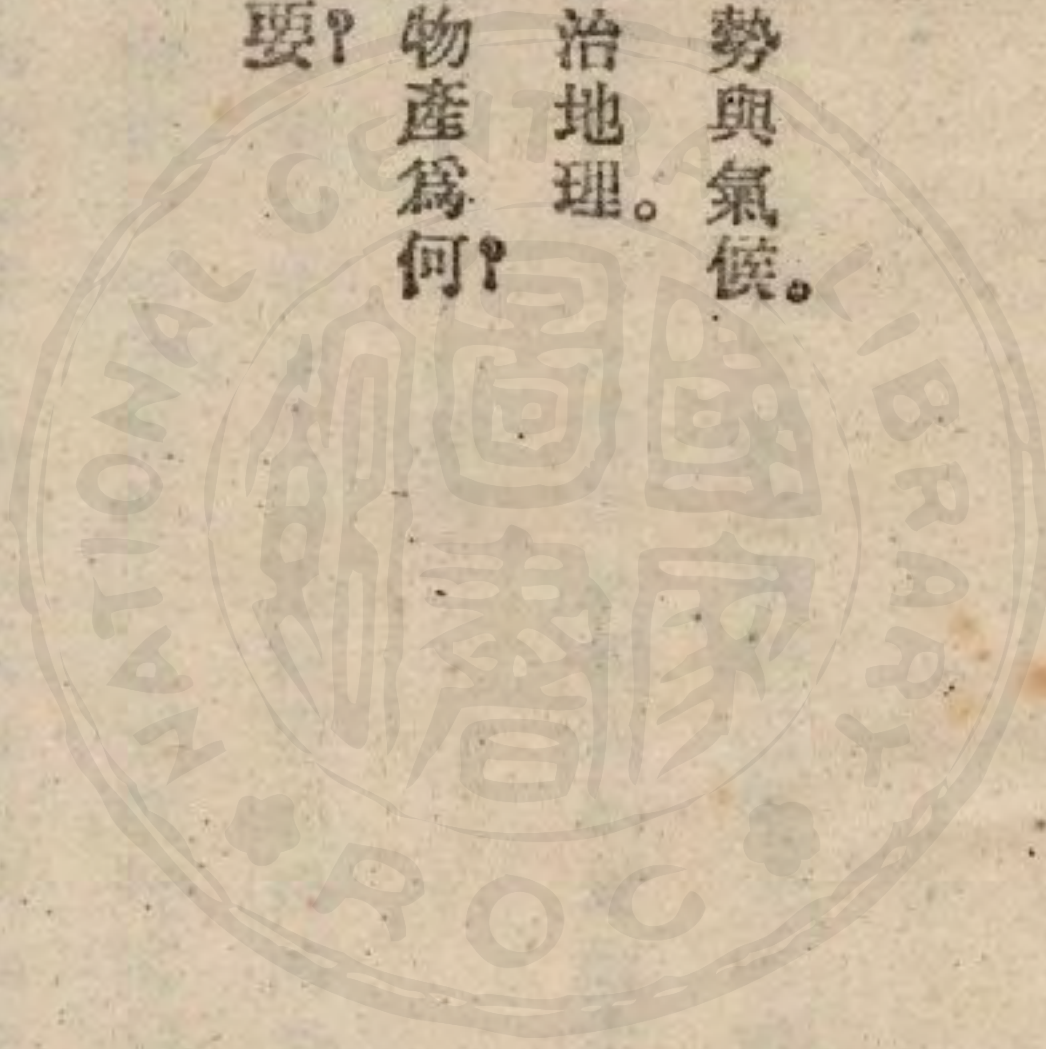 勢與氣候。
治地理。
物產爲何？
要？
NATIONAL CENTRAL LIBRARY
國家圖書館
ROC